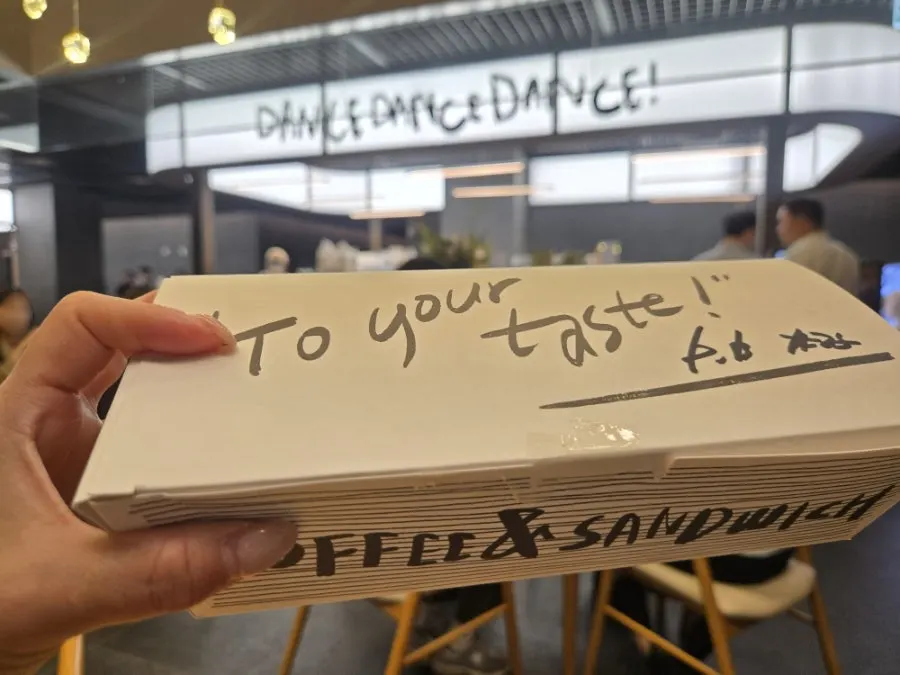 DANCEDANCEDANCE!
"To your taste!"
OFFEE & SANDWICH